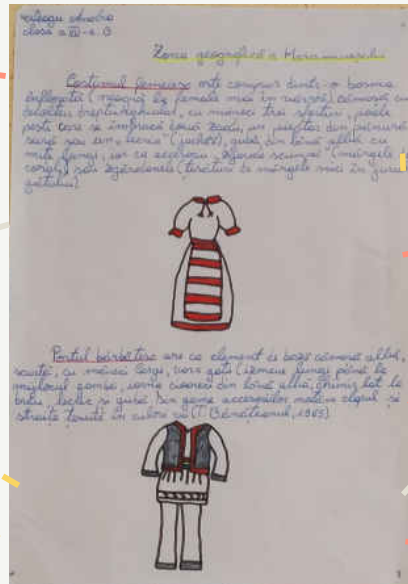 Andra
clasa a
Zona geografică a Maramureșului
Costumul femeiesc este compus dintr-o basma
înflorată (neagră la femeile mai în vârstă) cămașă cu
decolteu dreptunghiular, cu mâneci trei sferturi, poale
peste care se îmbracă două zadii, un pieptar din pănură
sură sau un lecric (                    ), gubă din lână albă cu
mițe lungi, iar ca accesorii zgarda scumpă (mărgele
corai) sau zgărdanele (țesături de mărgele mici în jurul
gâtului)
Portul bărbătesc are ca element de bază cămașa albă,
scurtă, cu mâneci largi, vara gatii (izmene lungi până la
mijlocul gambei, iarna cioareci din lână albă, chimir lat la
brâu, lecric și gubă. Din gama accesoriilor             clopul și
straița țesută în culori vii (T. Bănățeanul, 1965)